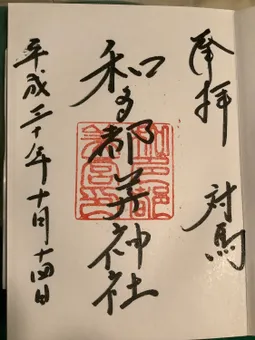 奉拝 対馬
和多都美神社
平成三十年十月十四日